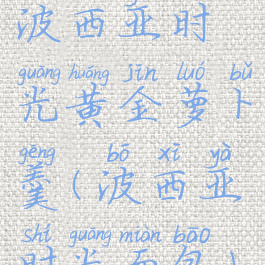 波西亚时
guāng huáng jīn luó bǔ
光黄金萝卜
gēng bō xī yà
羹(波西亚
shí guāng miàn bāo
时光面包)